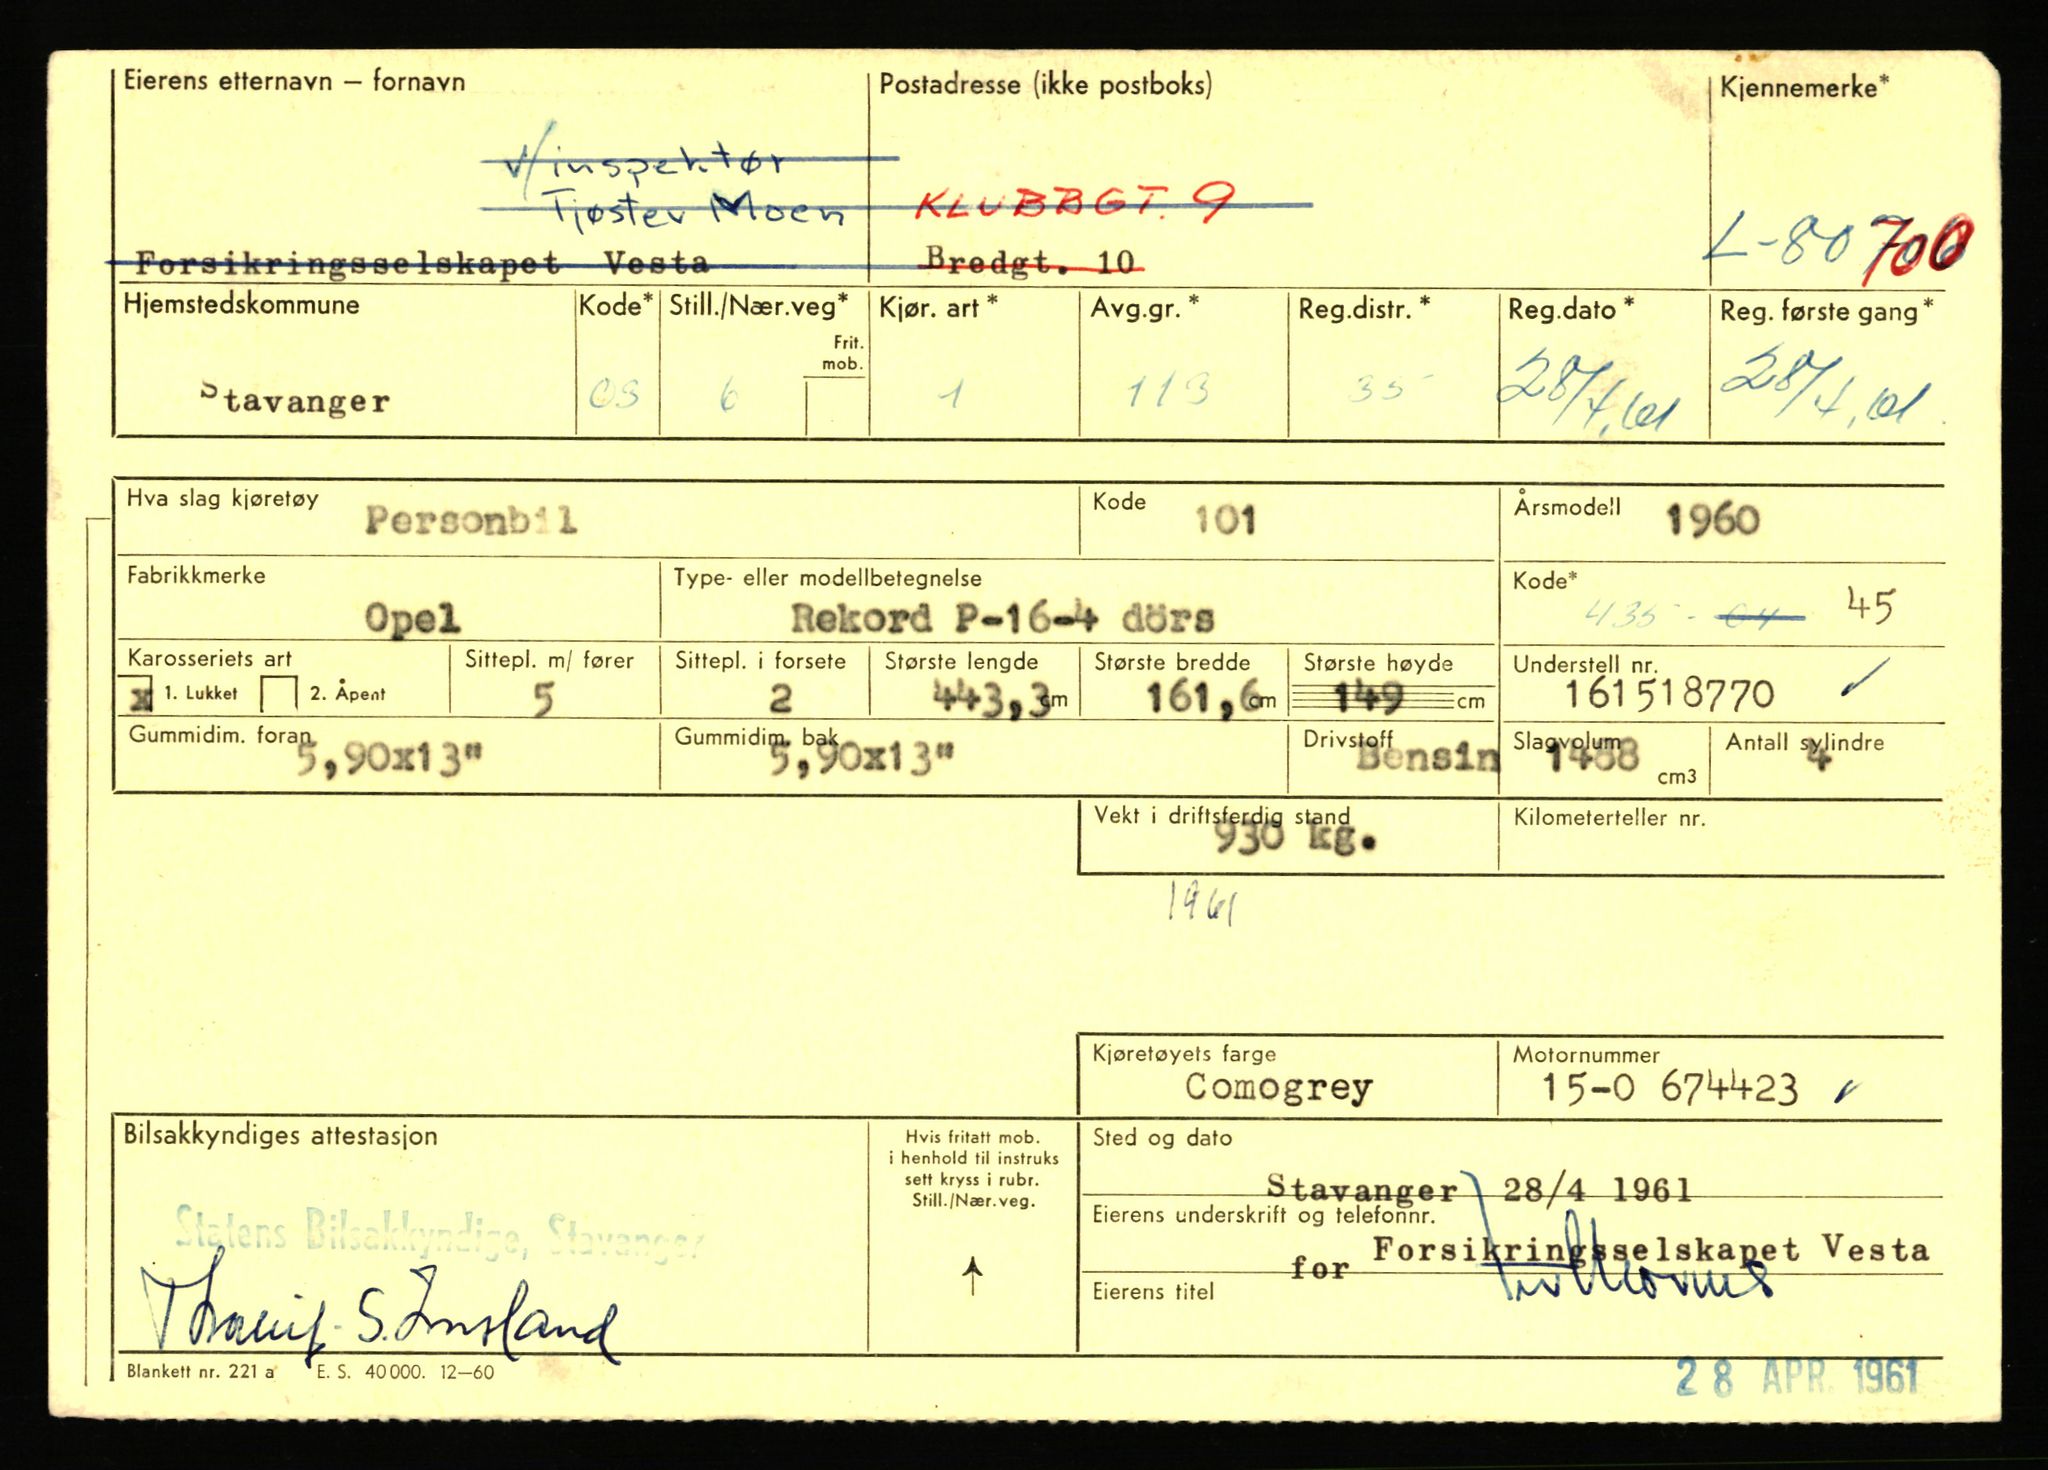 Eierens etternavn — fornavn
Postadresse (ikke postboks)
Kjennemerke*
v/inspektør
Tjøstev Moen
KLUBBGT. 9
L-80700
Forsikringsselskapet Vesta
Bredgt. 10
Hjemstedskommune
Kode*
Still./Nær.veg*
Kjør. art *
Avg.gr. *
Reg.distr. *
Reg.dato *
Reg. første gang*
Frit.
mob.
Stavanger
03
6
1
113
35
28/4.61
28/4.61
Hva slag kjøretøy
Personbil
Kode
101
Årsmodell
1960
Fabrikkmerke
Opel
Type- eller modellbetegnelse
Rekord P-16-4 dörs
Kode*
435 - 64 45
Karosseriets art
x 1. Lukket 2. Åpent
Sittepl. m/ fører
5
Sittepl. i forsete
2
Største lengde
443,3 cm
Største bredde
161,6 cm
Største høyde
149 cm
Understell nr.
161518770 ✓
Gummidim. foran
5,90x13"
Gummidim. bak
5,90x13"
Drivstoff
Bensin
Slagvolum
1488 cm3
Antall sylindre
4
Vekt i driftsferdig stand
930 kg.
Kilometerteller nr.
1961
Kjøretøyets farge
Comogrey
Motornummer
15-0 674423 ✓
Bilsakkyndiges attestasjon
Statens Bilsakkyndige, Stavanger
S. Imsland
Hvis fritatt mob.
i henhold til instruks
sett kryss i rubr.
Still./Nær.veg.
↑
Sted og dato
Stavanger 28/4 1961
Eierens underskrift og telefonnr.
for Forsikringsselskapet Vesta
Eierens titel
Blankett nr. 221 a E. S. 40 000. 12—60
28 APR. 1961